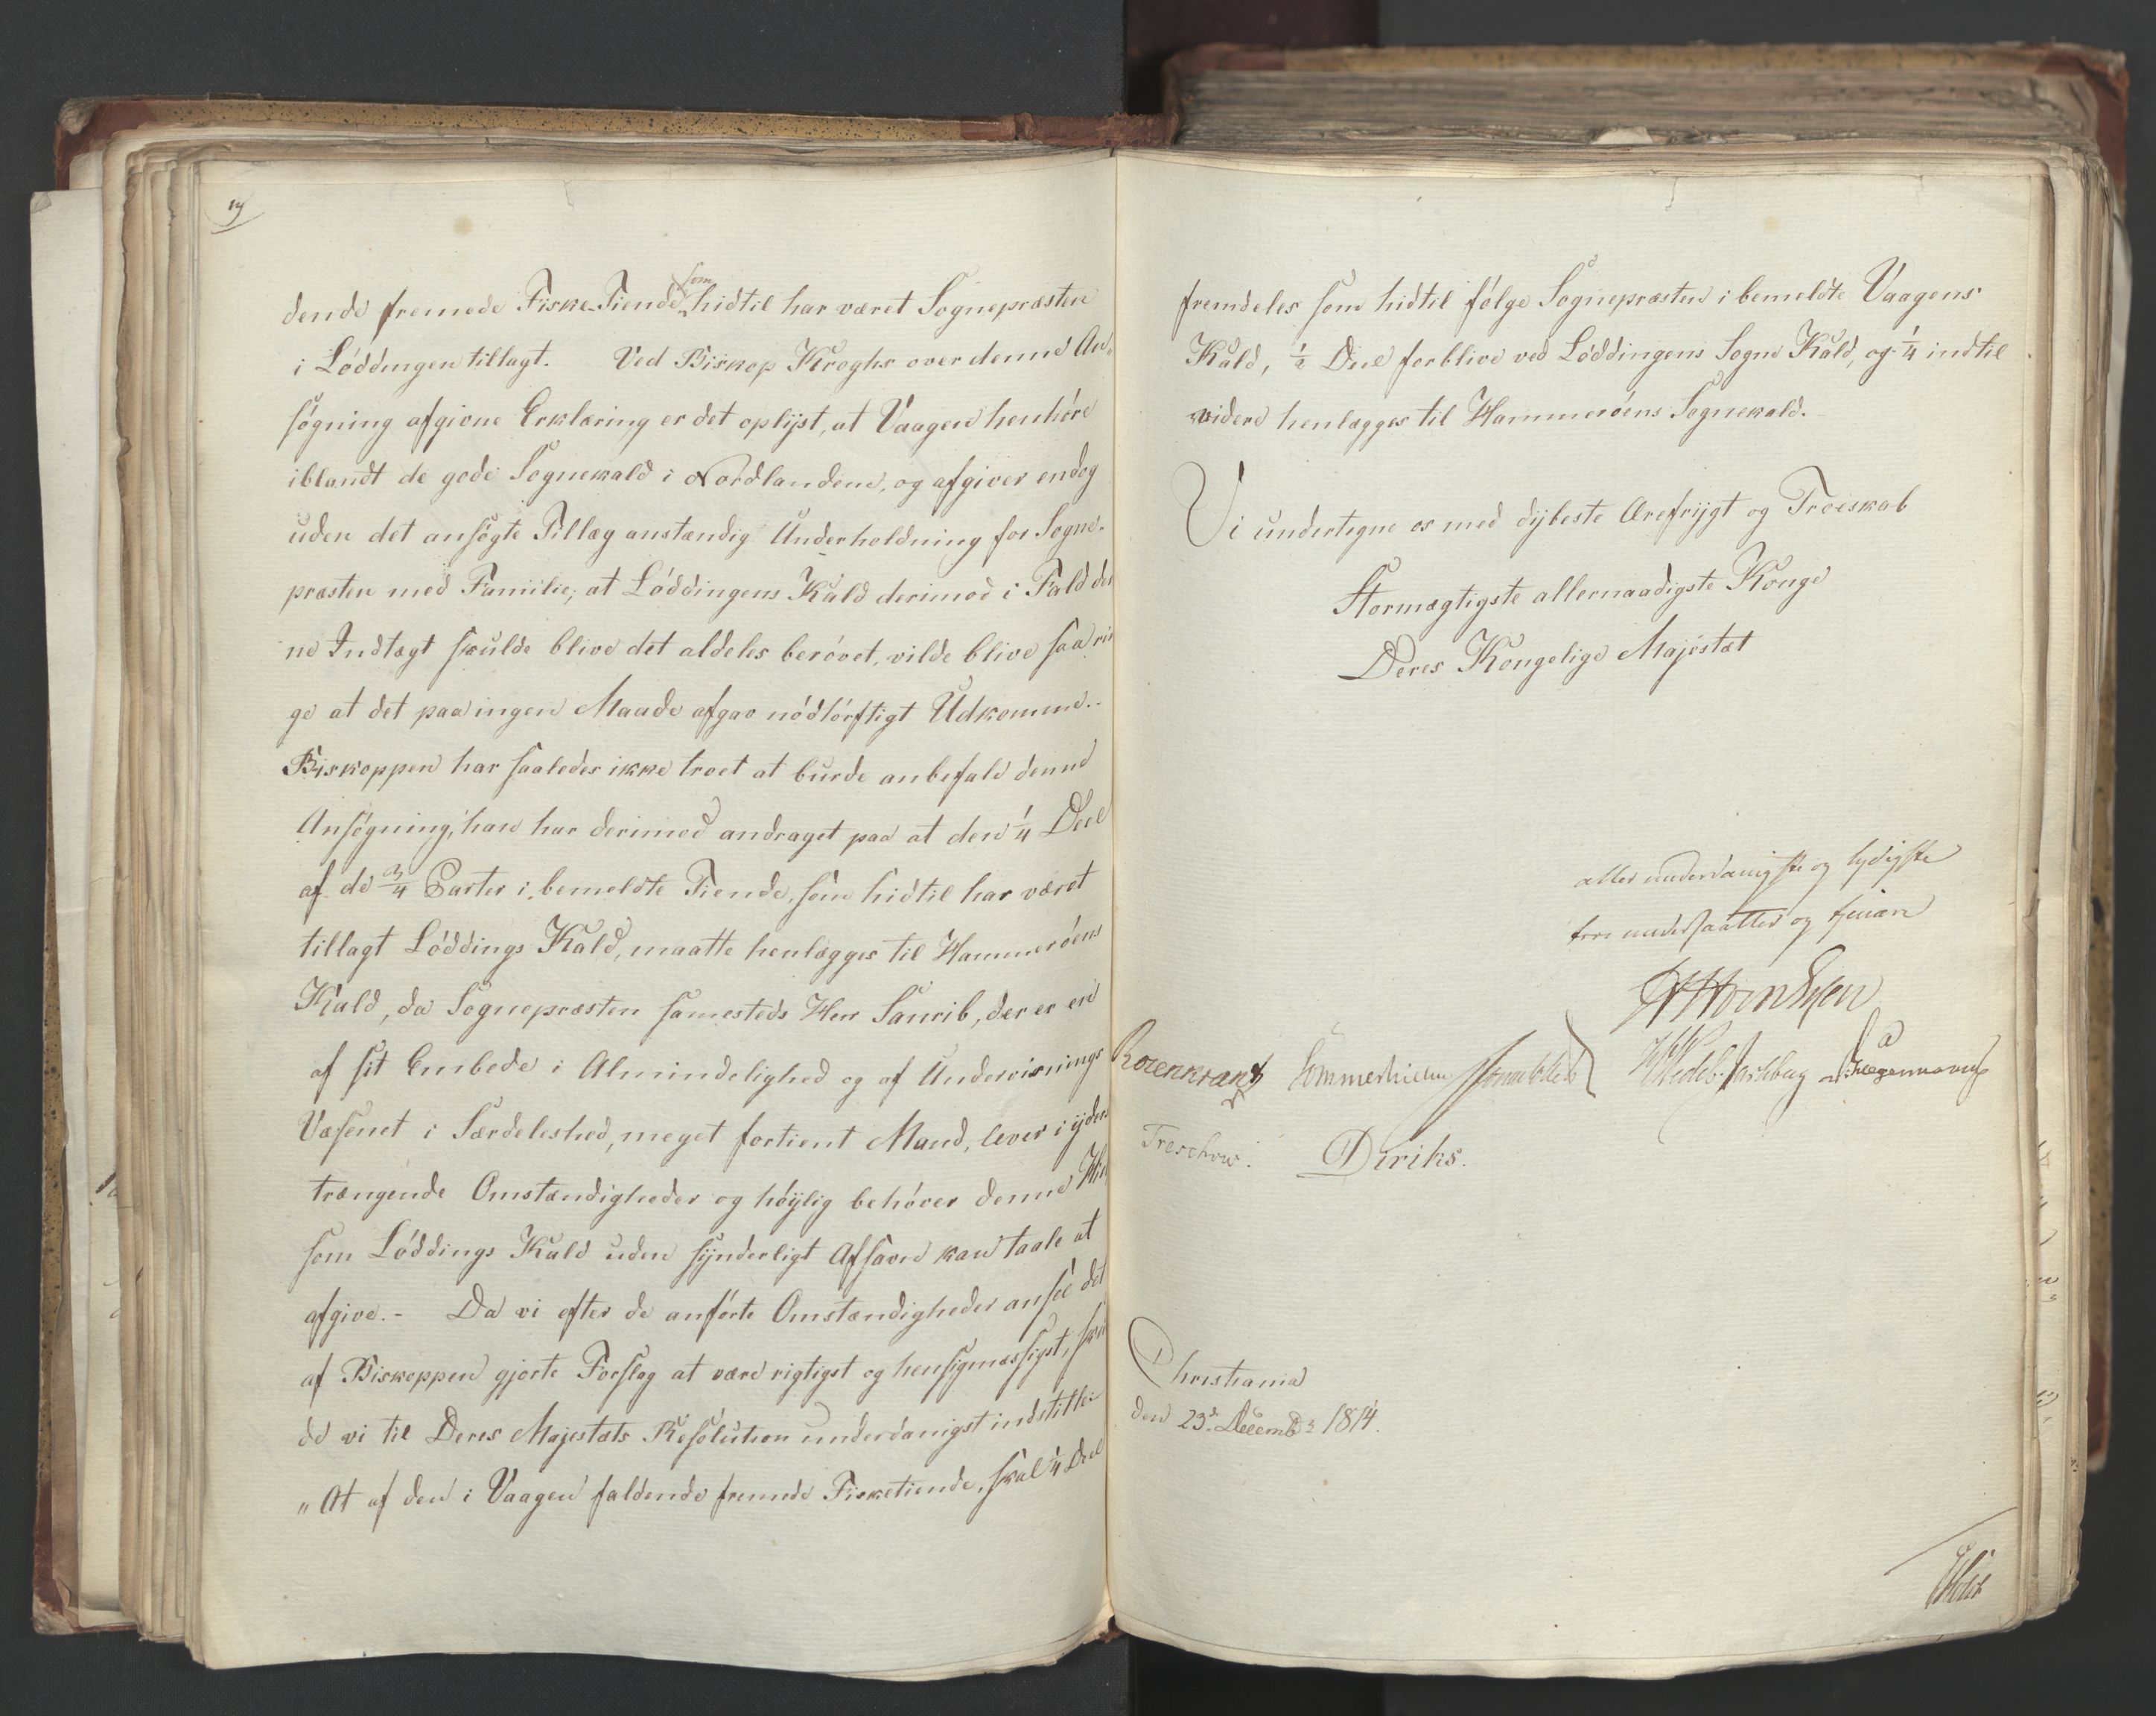 19
dende fremede Fiske-Tiende som hidtil har været Sognepræsten
i Løddingen tillagt. Ved Biskop Kroghs over denne An-
søgning afgivne Erklæring er det oplyst, at Vaagen henhøre
iblandt de gode Sognekald i Nordlandene, og afgiver endog
uden det ansøgte Tillæg anstændig Underholdning for Sogne-
præsten med Familie; at Løddingens Kald derimod i Fald den
ne Indtægt skulde blive det aldeles berøvet, vilde blive saa rin
ge at det paa ingen Maade afgav nødtørftigt Udkomme.
Biskoppen har saaledes ikke troet at burde anbefale denne
Ansøgning, han har derimod andraget paa at den 1/4 Deel
af de 3/4 Parter i bemeldte Tiende, som hidtil har været
tillagt Løddings Kald, maatte henlægges til Hammerøens
Kald, da Sognepræsten samesteds Herr Saurib, der er en
af sit Embede i Almindelighed og af Underviisnings
Væsenet i Særdeleshed, meget fortient Mand, lever i yderst
trængende Omstændigheder og høylig behøver denne
som Løddings Kald uden synderligt Afsavn kan taale at
afgive. - Da vi efter de anførte Omstændigheder ansee det
af Biskoppen gjorte Forslag at være rigtigst og hensigmæssigst,
de vi til Deres Majestæts Resolution underdanigst indstille:
"At af den i Vaagen faldende fremede Fisketiende, skal 1/4 Deel
fremdeles som hidtil følge Sognepræsten i bemeldte Vaagens
Kald, 1/2 Deel forblive ved Løddingens Sogne Kald, og 1/4 indtil
videre henlægges til Hammerøens Sognekald.
Vi undertegne os med dybeste Ærefrygt og Troeskab
Stormægtigste allernaadigste Konge
Deres Kongelige Majestæt
allerunderdanigste og lydigste
troe undersaatter og tjenere
Rosenkrantz Sommerhielm Wedel-Jarlsberg
Treschow. Diriks.
Christiania
den 23de Decembr 1814.